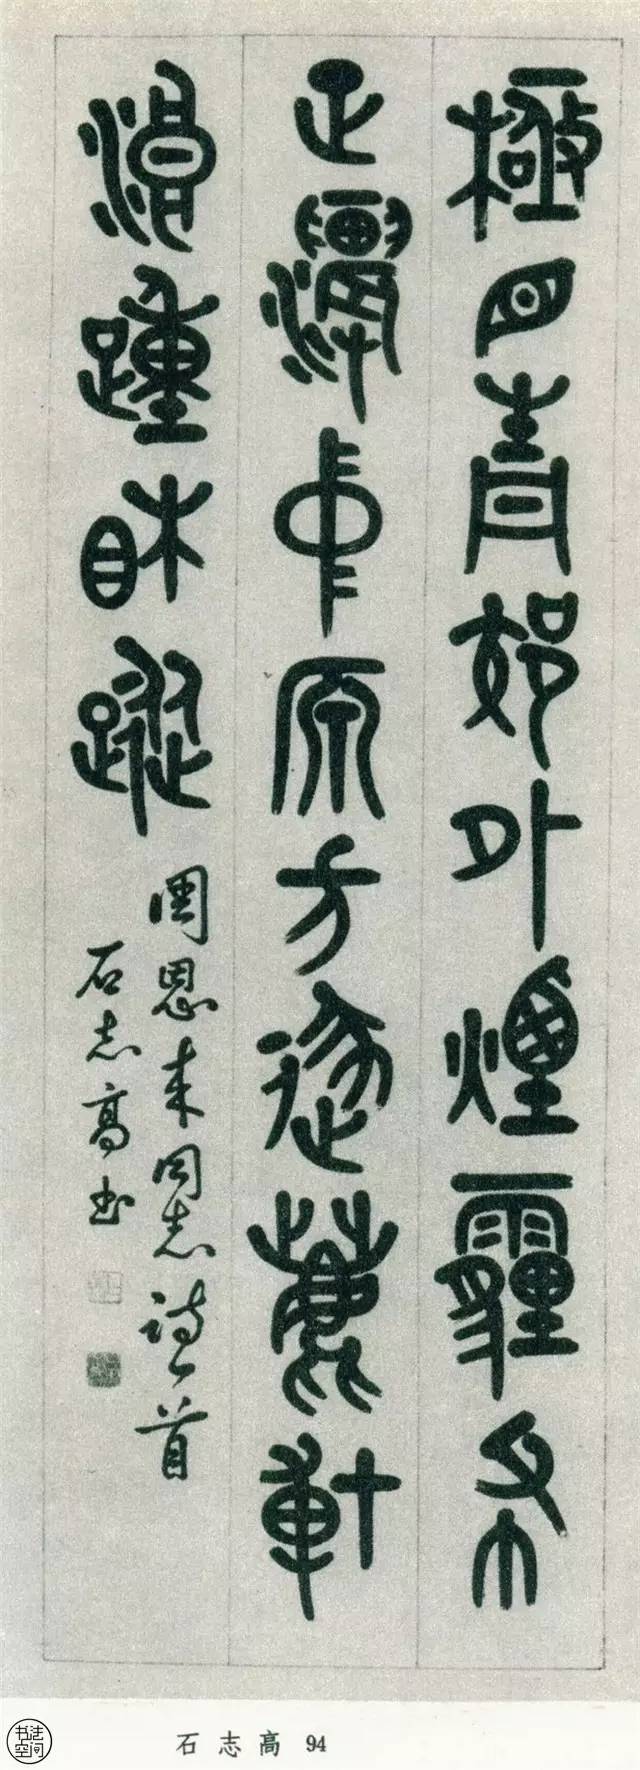 極目青郊外煙霾布
正濃中原方逐鹿博
浪踵相蹤
周恩来同志诗一首
石志高书
石志高 94
书法空间